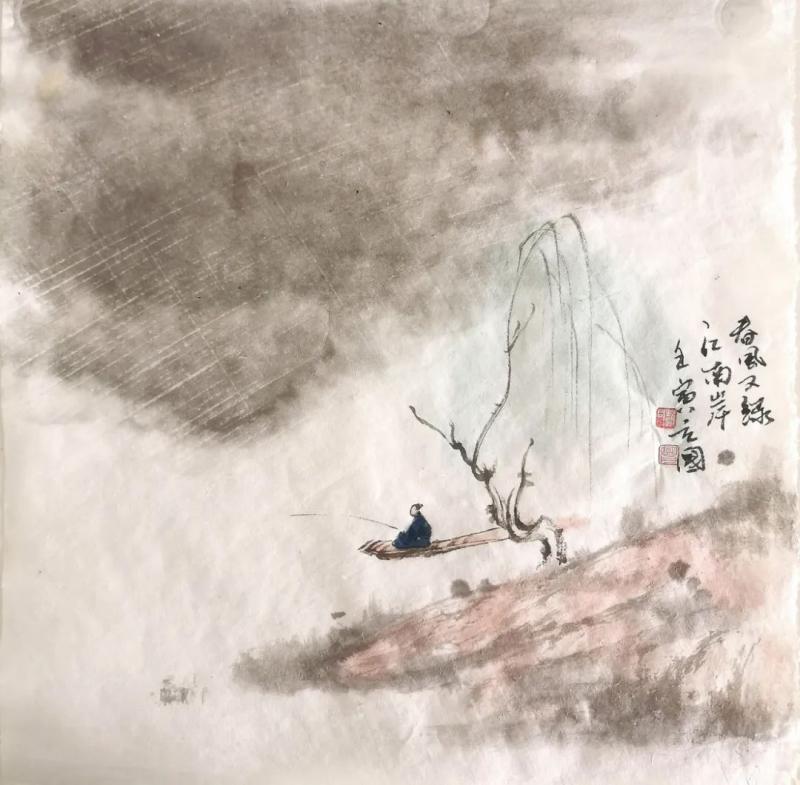 春风又绿
江南岸
壬寅